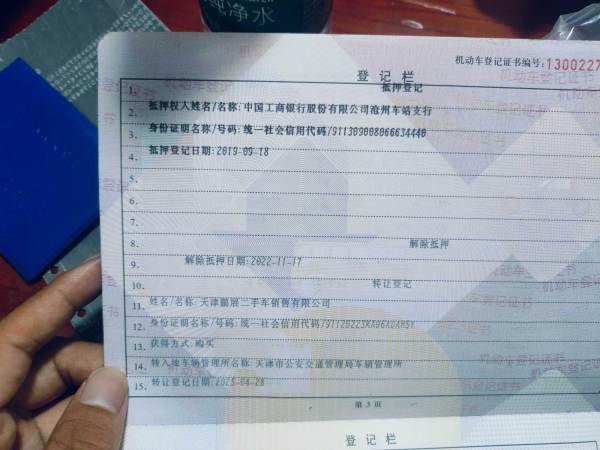 净水
机动车登记证书编号:1300227
登记栏
1. 抵押登记
2. 抵押权人姓名/名称:中国工商银行股份有限公司沧州车站支行
3. 身份证明名称/号码:统一社会信用代码/911309008066634440
4. 抵押登记日期:2019-09-18
5.
6.
7.
8. 解除抵押
9. 解除抵押日期:2022-11-17
10. 转让登记
11. 姓名/名称:天津鹏展二手车销售有限公司
12. 身份证明名称/号码:统一社会信用代码
13. 获得方式:购买
14. 转入地车辆管理所名称:天津市公安交通管理局车辆管理所
15. 转让登记日期:2023-04-28
第3页
登记栏